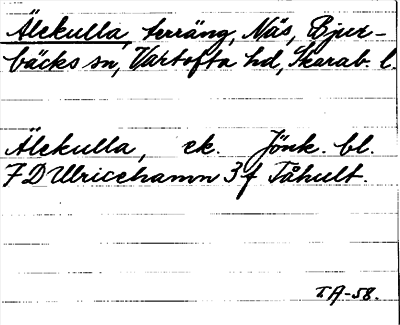 Älekulla, terräng, Näs, Bjur-
bäcks sn, Vartofta hd, Skarab. l.
Älekulla, ek. Jönk. bl.
7 D Ulricehamn 3 f Tåhult.
I A-58.